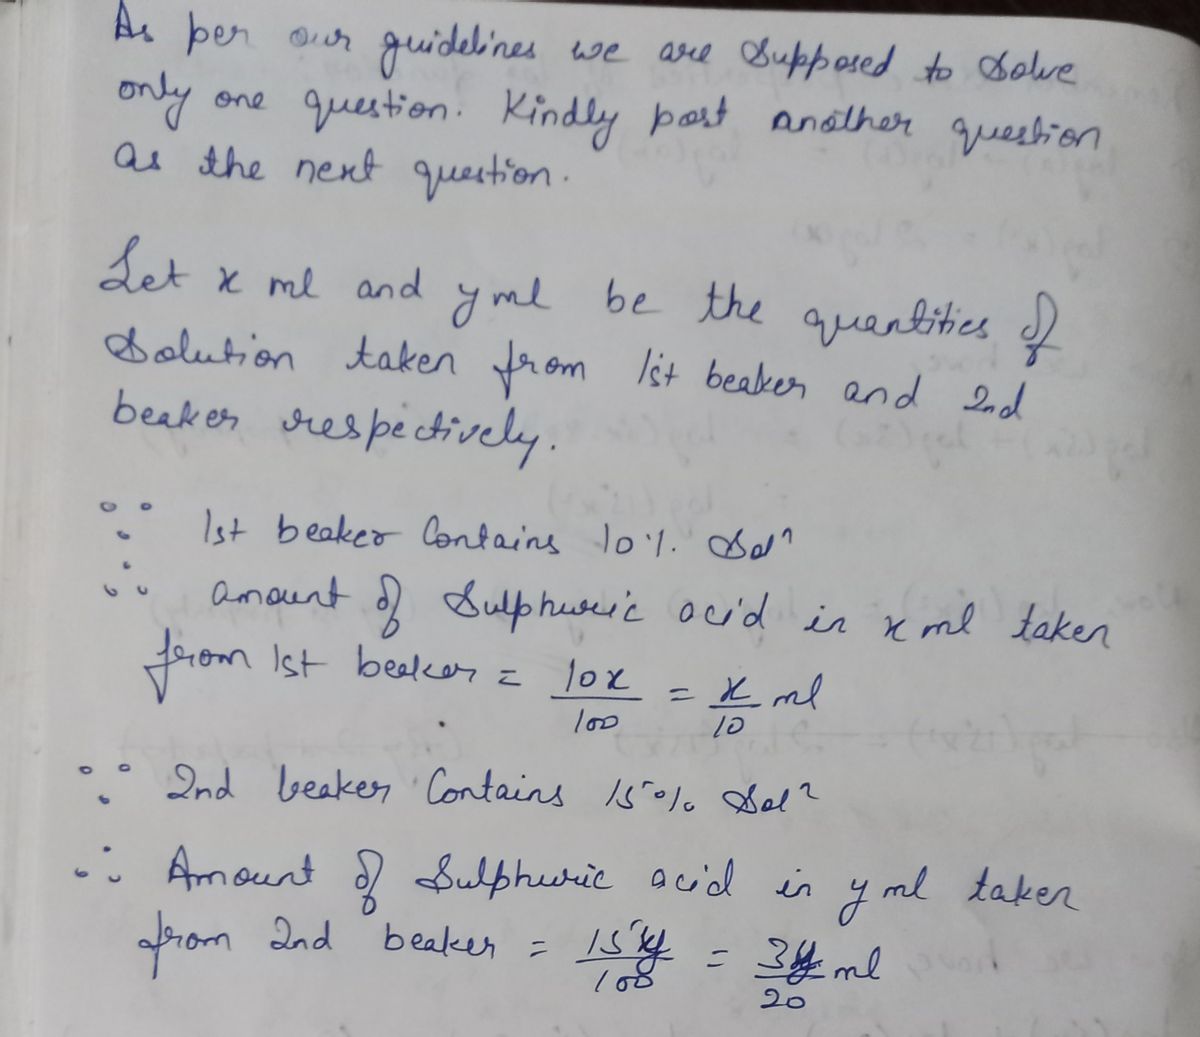 As per our guidelines we are supposed to solve
only one question. Kindly post another question
as the next question.
Let x ml and y ml be the quantities of
Solution taken from 1st beaker and 2nd
beaker respectively.
∵ 1st beaker Contains 10%. Solⁿ
∴ amount of Sulphuric acid in x ml taken
from 1st beaker = 10x/100 = x/10 ml
∵ 2nd beaker Contains 15% Solⁿ
∴ Amount of Sulphuric acid in y ml taken
from 2nd beaker = 15y/100 = 3y/20 ml